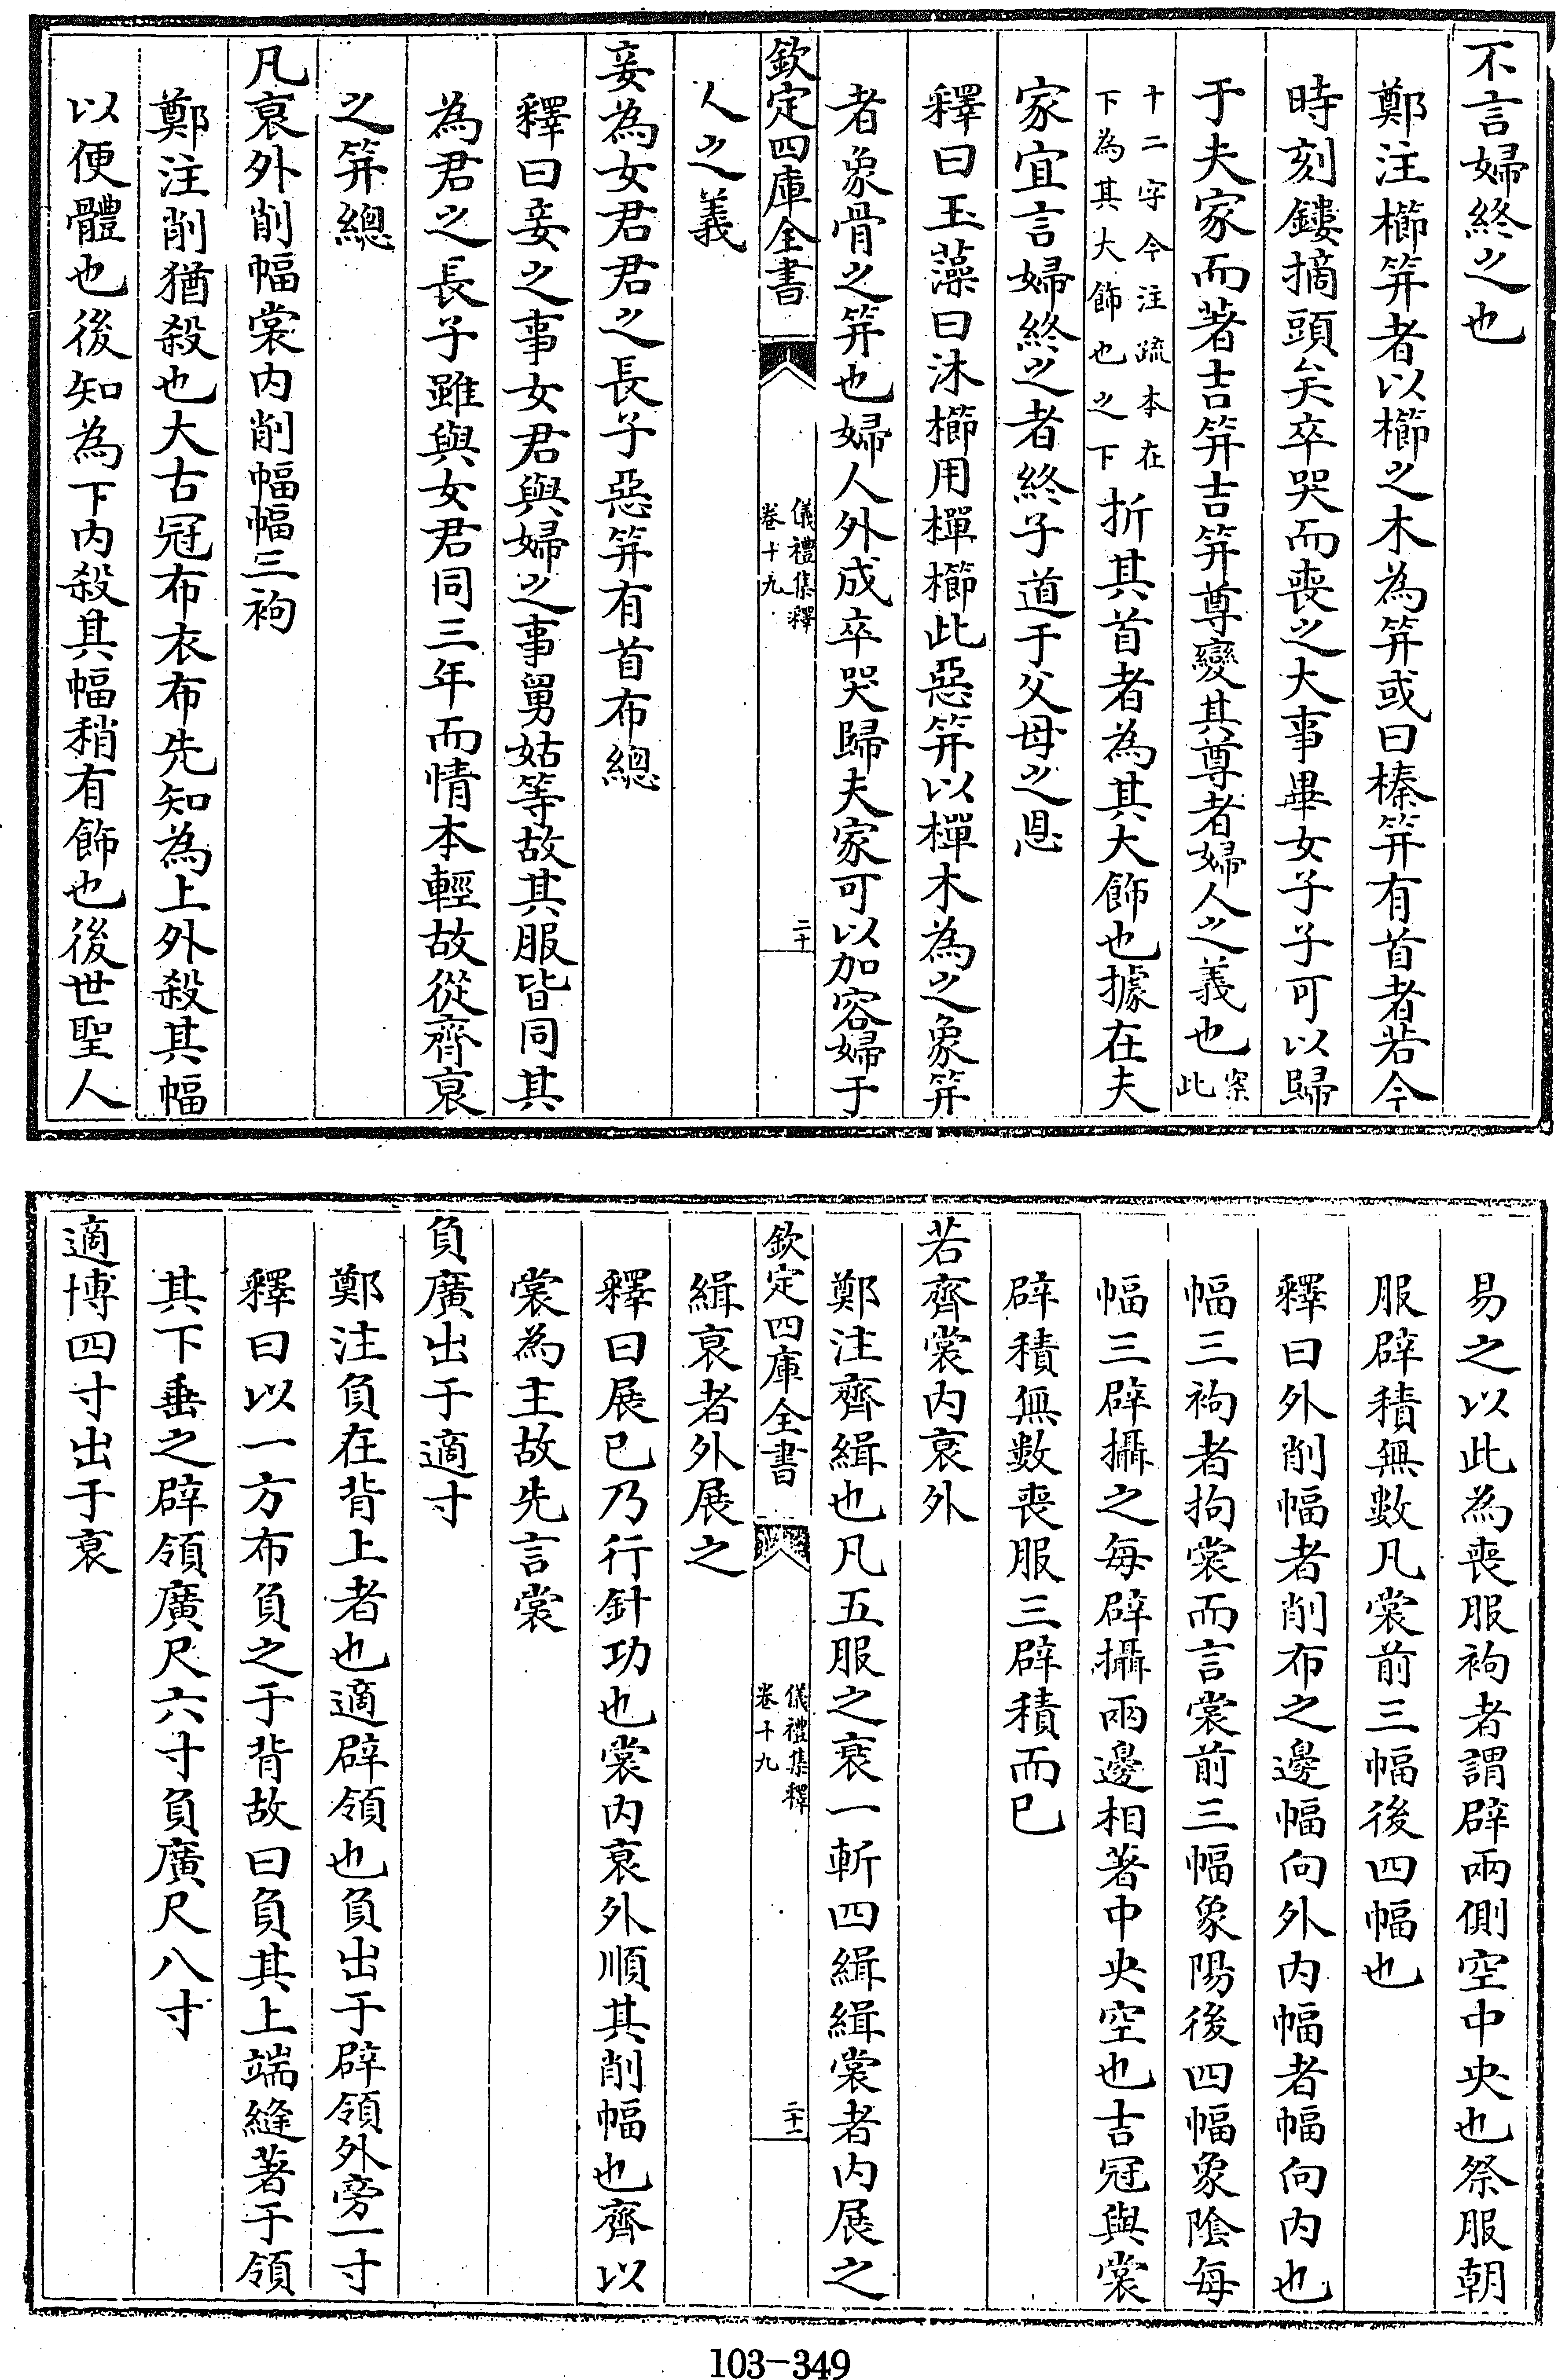 不言婦終之也
鄭注櫛筓者以櫛之木為筓或曰榛筓有首者若今
時刻鏤摘頭矣卒哭而喪之大事畢女子子可以歸
于夫家而著吉筓吉筓尊變其尊者婦人之義也案此
十二字今注疏本在下為其大飾也之下折其首者為其大飾也據在夫
家宜言婦終之者終子道于父母之恩
釋曰玉藻曰沐櫛用樿櫛此惡筓以樿木為之象筓
者象骨之筓也婦人外成卒哭歸夫家可以加容婦于
欽定四庫全書 儀禮集釋 卷十九 二十
人之義
妾為女君君之長子惡筓有首布總
釋曰妾之事女君與婦之事舅姑等故其服皆同其
為君之長子雖與女君同三年而情本輕故從齊衰
之筓總
凡衰外削幅裳内削幅幅三袧
鄭注削猶殺也大古冠布衣布先知為上外殺其幅
以便體也後知為下内殺其幅稍有飾也後世聖人
易之以此為喪服袧者謂辟兩側空中央也祭服朝
服辟積無數凡裳前三幅後四幅也
釋曰外削幅者削布之邊幅向外内幅者幅向内也
幅三袧者拘裳而言裳前三幅象陽後四幅象陰每
幅三辟攝之每辟攝兩邊相著中央空也吉冠與裳
辟積無數喪服三辟積而已
若齊裳内衰外
鄭注齊緝也凡五服之衰一斬四緝緝裳者内展之
欽定四庫全書 儀禮集釋 卷十九 二十一
緝衰者外展之
釋曰展已乃行針功也裳内衰外順其削幅也齊以
裳為主故先言裳
負廣出于適寸
鄭注負在背上者也適辟領也負出于辟領外旁一寸
釋曰以一方布負之于背故曰負其上端縫著于領
其下垂之辟領廣尺六寸負廣尺八寸
適博四寸出于衰
103-349